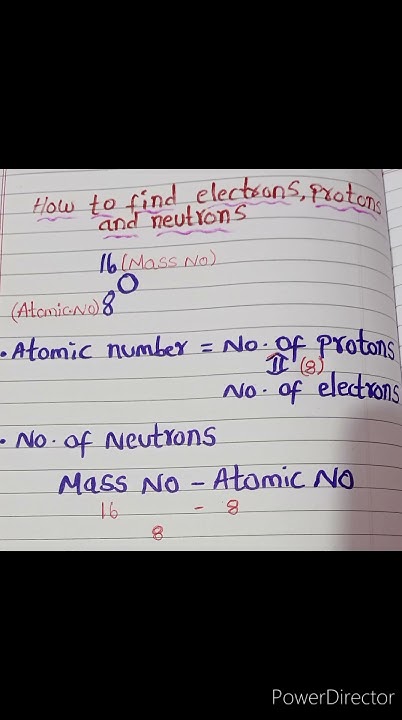 How to find electrons, protons
and neutrons
16 (Mass No)
O
(Atomic No) 8
• Atomic number = No. of protons
(8)
No. of electrons
• No. of Neutrons
Mass No - Atomic No
16 - 8
8
PowerDirector